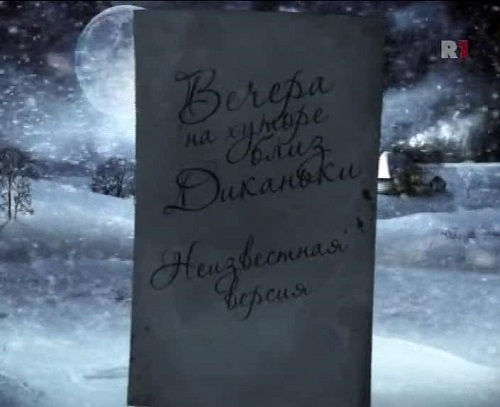 R1
Вечера
на хуторе
близ
Диканьки
Неизвестная
версия